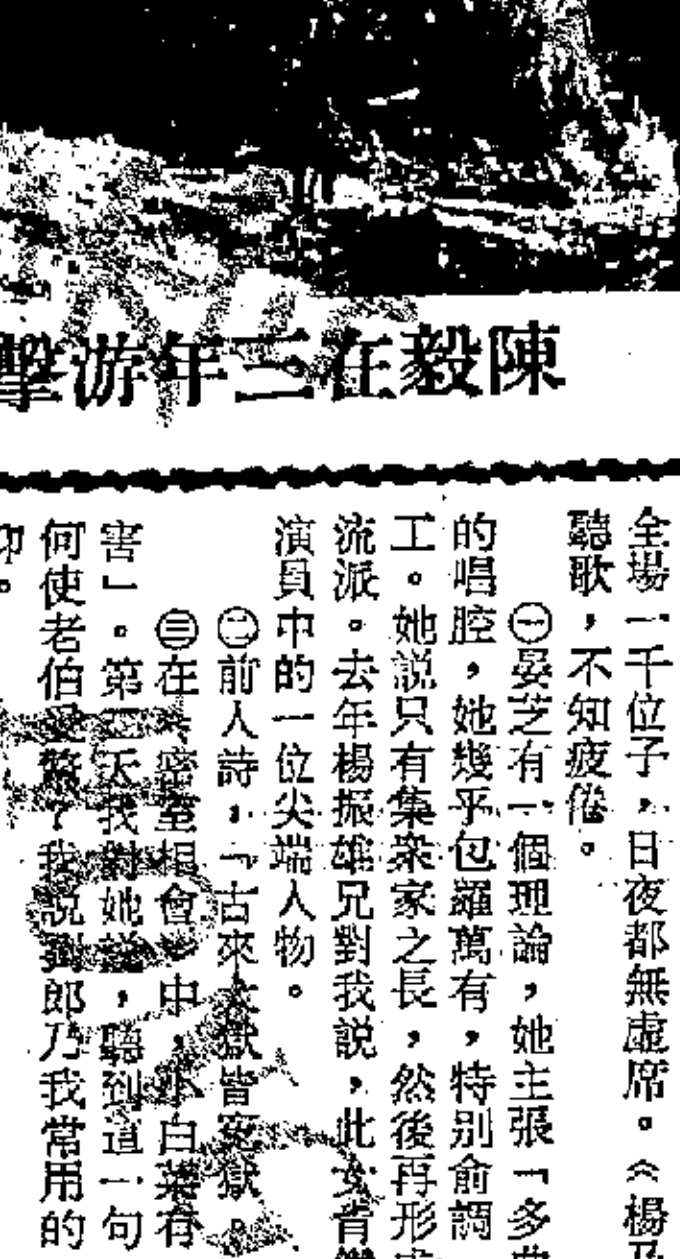 陳毅在三年游擊
全場一千位子，日夜都無虛席。《楊乃
聽歌，不知疲倦。
㊀晏芝有一個理論，她主張「多
的唱腔，她幾乎包羅萬有，特別俞調
工。她説只有集衆家之長，然後再形成
流派。去年楊振雄兄對我説，此女肯
演員中的一位尖端人物。
㊁前人詩，「古來大獄皆冤獄。
㊂在密室相會中，小白菜有
害」。第二天我對她説，聽到這一句
何使老伯受驚？我説劉郎乃我常用的
仰。